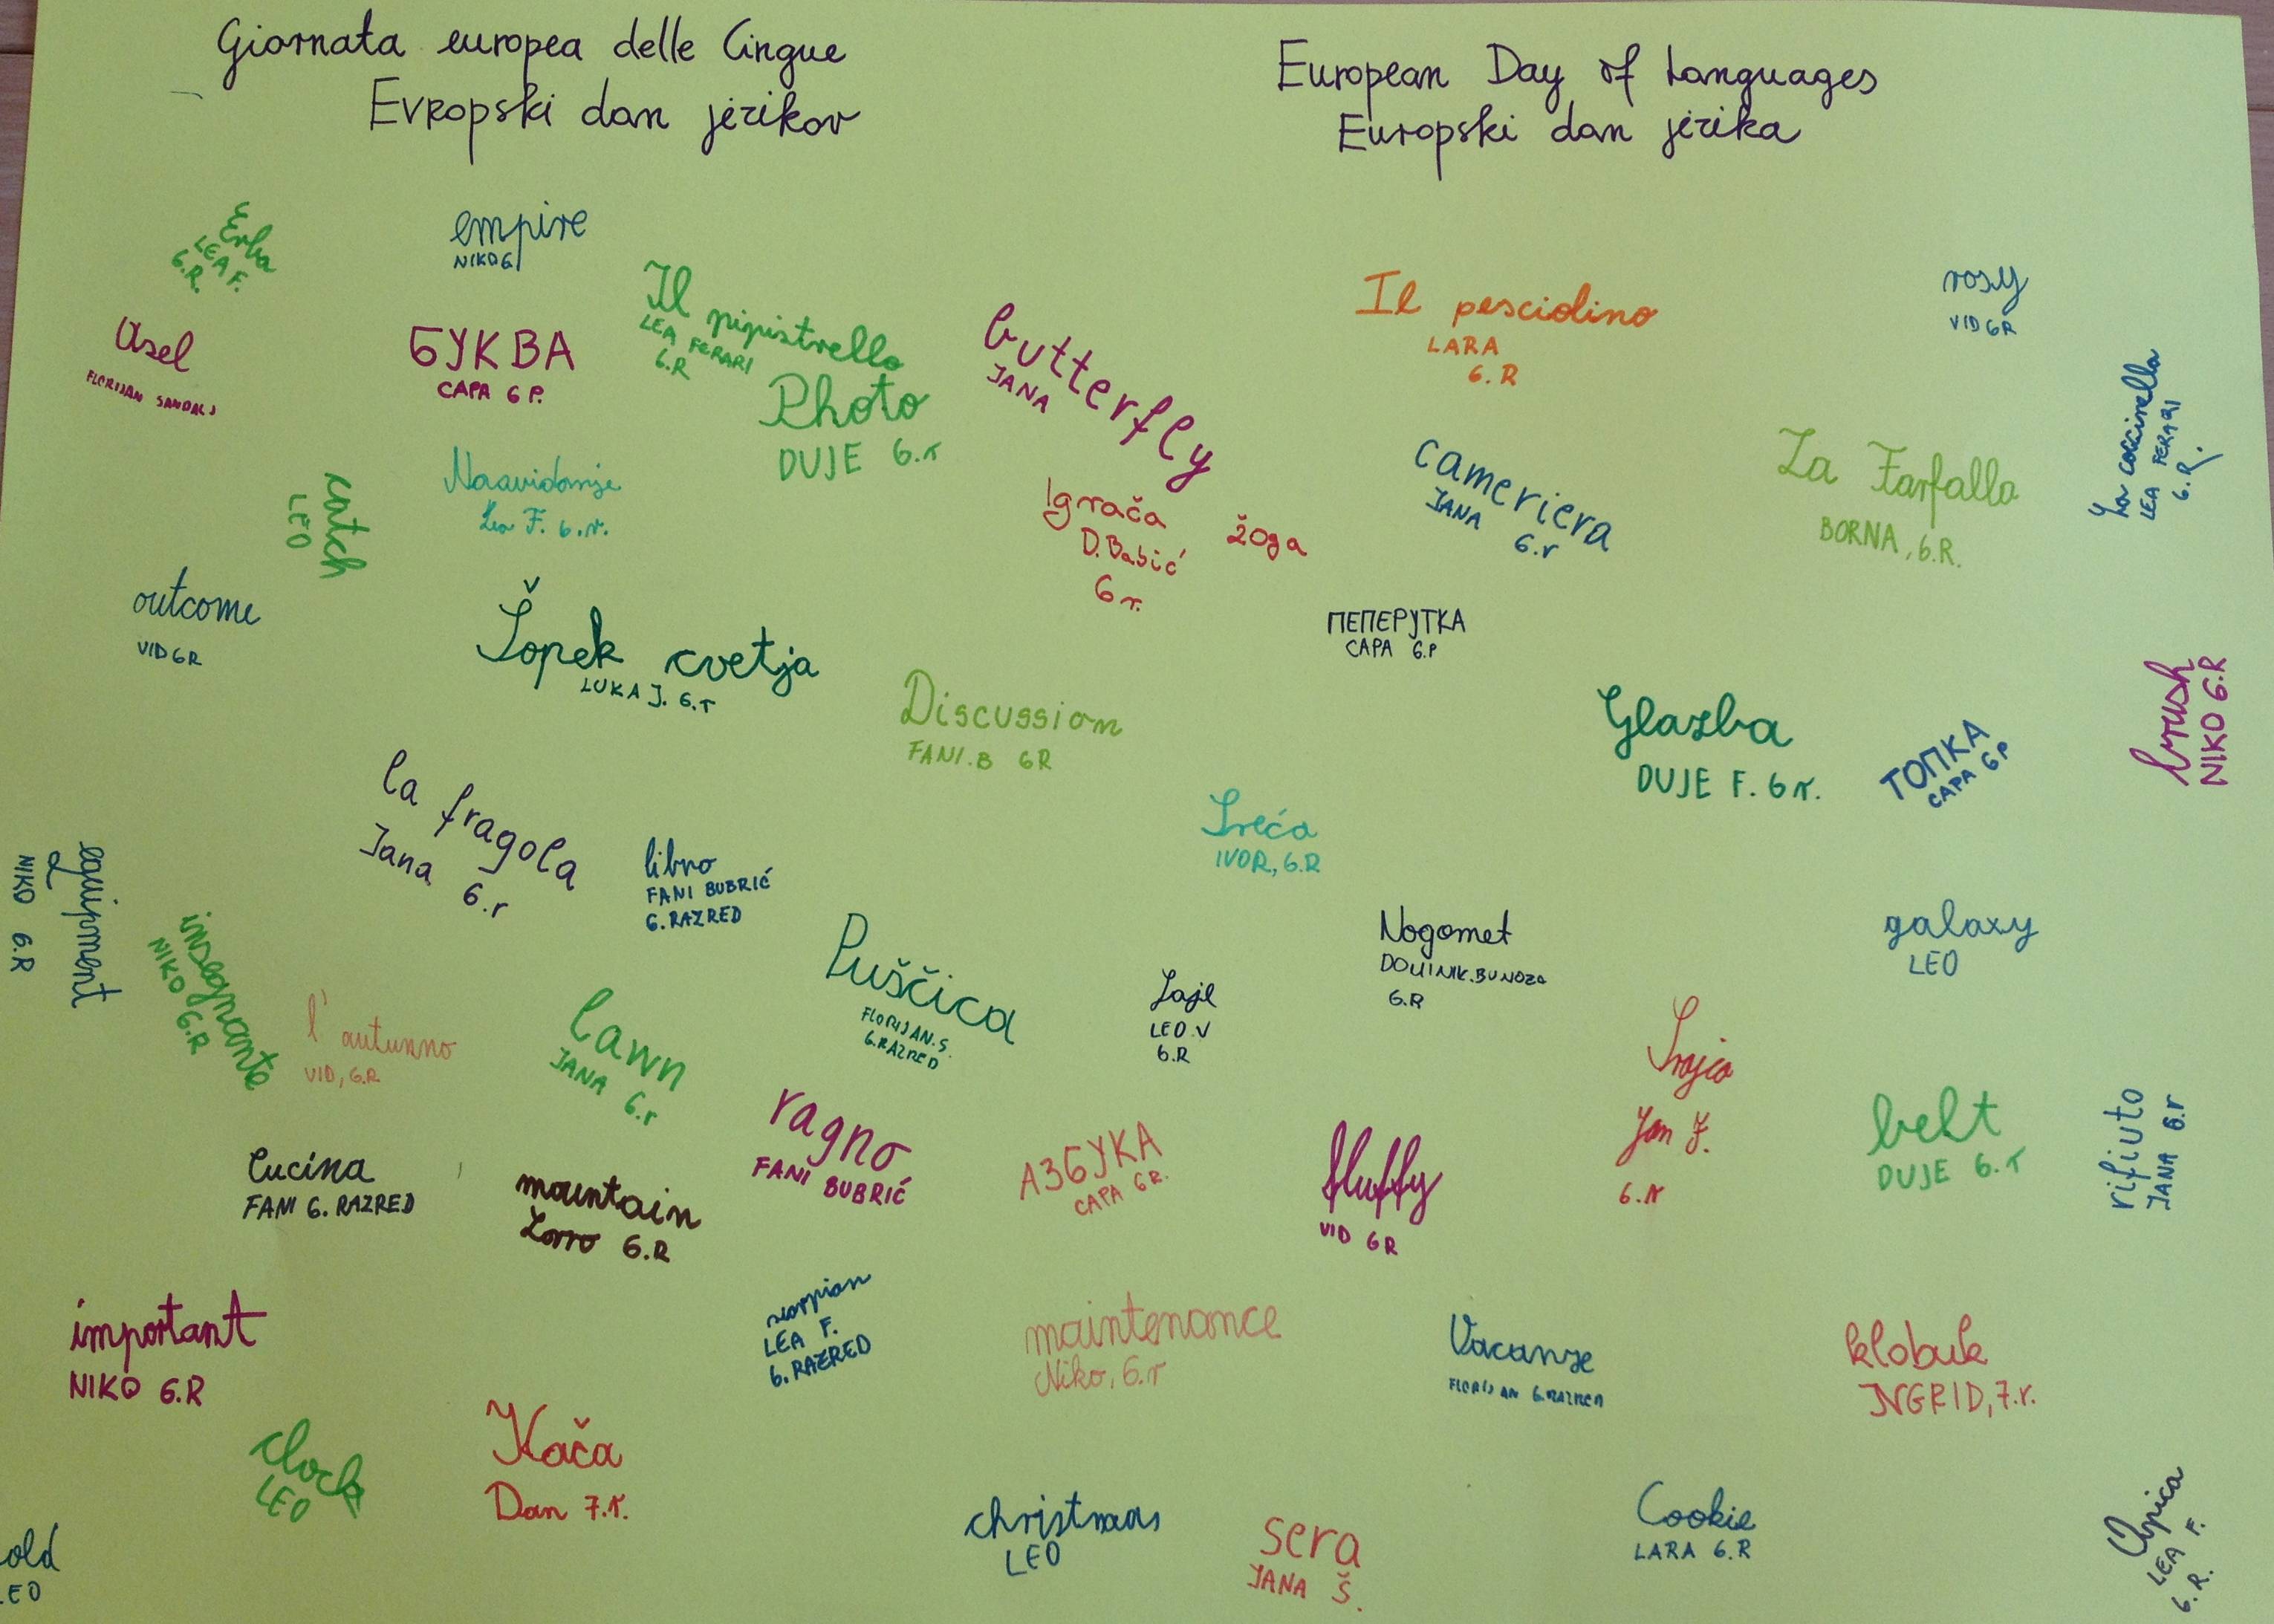 Giornata europea delle lingue
Evropski dan jezikov
European Day of Languages
Europski dan jezika
Erba
LEA F.
6.R.
empire
NIKO 6
Il pipistrello
LEA FERARI
6.R
butterfly
JANA
Il pesciolino
LARA
6.R
rosy
VID 6R
FLORIJAN SANDALJ
БУКВА
САРА 6 Р.
Photo
DUJE 6.r
cameriera
JANA
6.r
La Farfalla
BORNA, 6.R.
La coccinella
LEA FERARI
6.R.
catch
LEO
Lea F. 6.r.
Igrača žoga
D.Babić
6 r.
outcome
VID 6R
Šopek cvetja
LUKA J. 6.r
ПЕПЕРУТКА
САРА 6.Р
Discussion
FANI.B 6R
Glazba
DUJE F. 6r.
ТОПКА
САРА 6Р
brush
NIKO 6.R
la fragola
Jana 6.r
libro
FANI BUBRIĆ
6.RAZRED
Sreća
IVOR, 6.R
equipment
NIKO 6.R
insegnante
NIKO 6.R
l'autunno
VID, 6.R
lawn
JANA 6.r
Puščica
FLORIJAN.S.
6.RAZRED
LEO.V
6.R
Nogomet
DOMINIK.BUNOZA
6.R
galaxy
LEO
Srajca
Jan F.
6.r
belt
DUJE 6.r
rifiuto
JANA 6.r
Cucina
FANI 6. RAZRED
mountain
Lorro 6.R
ragno
FANI BUBRIĆ
АЗБУКА
САРА 6R.
fluffy
VID 6R
important
NIKO 6.R
scorpion
LEA F.
6. RAZRED
maintenance
Niko, 6.r
Vacanze
FLORIJAN 6.RAZRED
klobuk
INGRID, 7.r.
clock
LEO
Kača
Dan 7.r.
christmas
LEO
sera
JANA Š.
Cookie
LARA 6.R
LEA F.
6.R.
old
LEO